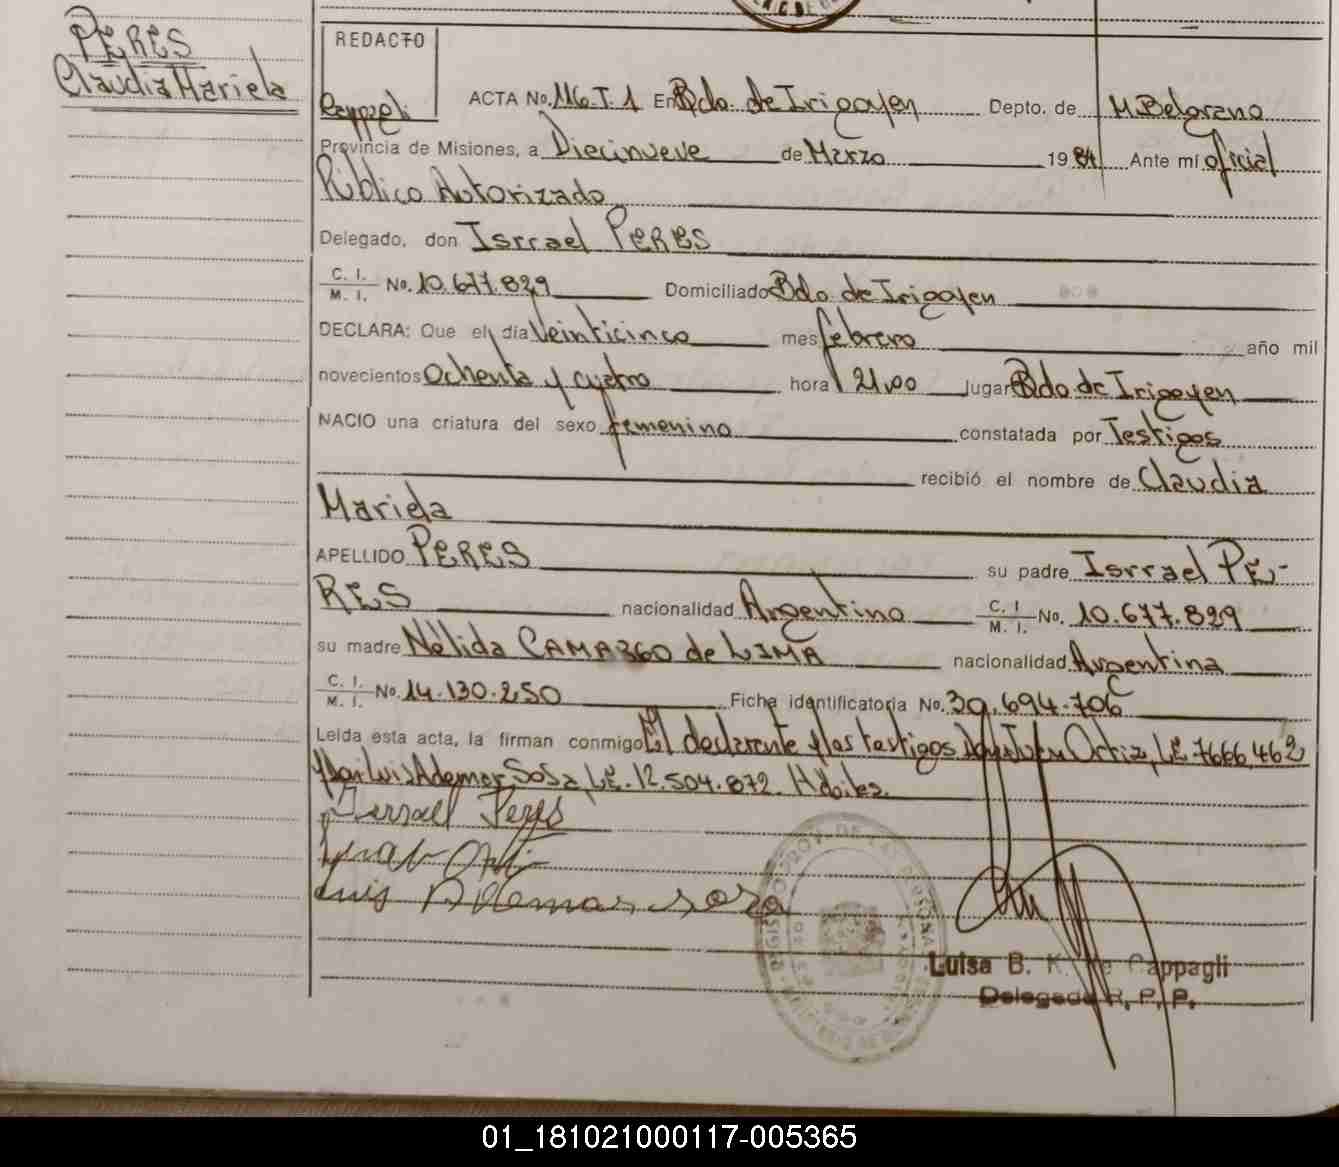 PERES
Claudia Mariela
REDACTO
Cappagli
ACTA No. 116-T. 1 En Bdo. de Irigoyen Depto. de M. Belgrano
Provincia de Misiones, a Diecinueve de Marzo 19 84 Ante mí oficial
Público Autorizado
Delegado, don Isrrael PERES
C. I. / M. I. No. 10.677.829 Domiciliado Bdo de Irigoyen
DECLARA: Que el día Veinticinco mes febrero año mil
novecientos Ochenta y cuatro hora 21,00 lugar Bdo de Irigoyen
NACIO una criatura del sexo femenino constatada por Testigos
recibió el nombre de Claudia
Mariela
APELLIDO PERES su padre Isrrael PE-
RES nacionalidad Argentino C. I. / M. I. No. 10.677.829
su madre Nélida CAMARGO de LIMA nacionalidad Argentina
C. I. / M. I. No. 14.130.250 Ficha identificatoria No. 30.694.706 C
Leída esta acta, la firman conmigo El declarente y los testigos Don Juan Ortiz, LE. 7666.462
y Don Luis Ademar Sosa, LE. 12.504.872. Hábiles.
Isrrael Peres
Luis Ademar Sosa
Luisa B. K. de Cappagli
Delegada R. P. P.
01_181021000117-005365